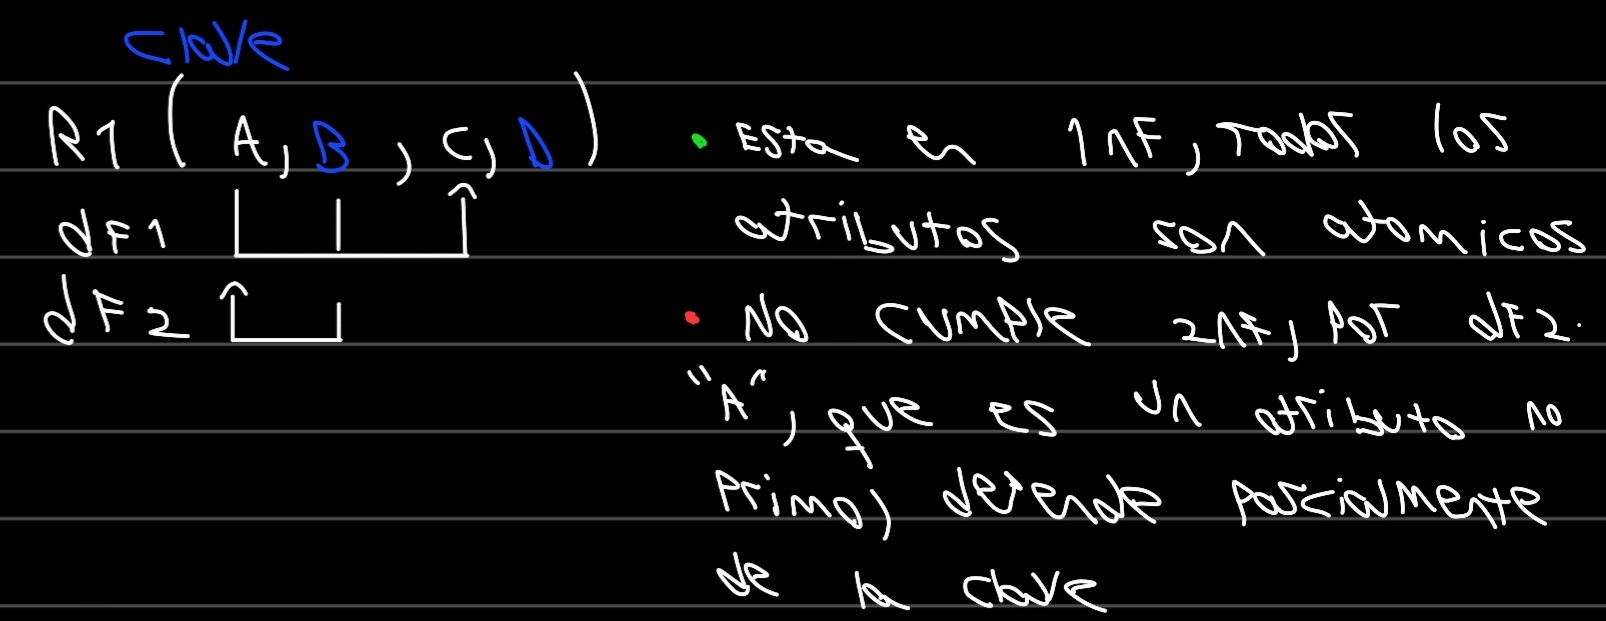 clave
R1 ( A, B , C, D )
dF1
dF2
• Esta en 1NF, Todos los
atributos son atomicos
• No cumple 2NF, por dF2.
"A", que es un atributo no
Primo, depende parcialmente
de la clave